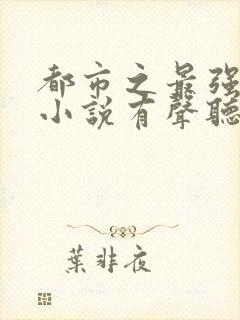 都市之最强
小說有聲聽
葉非夜